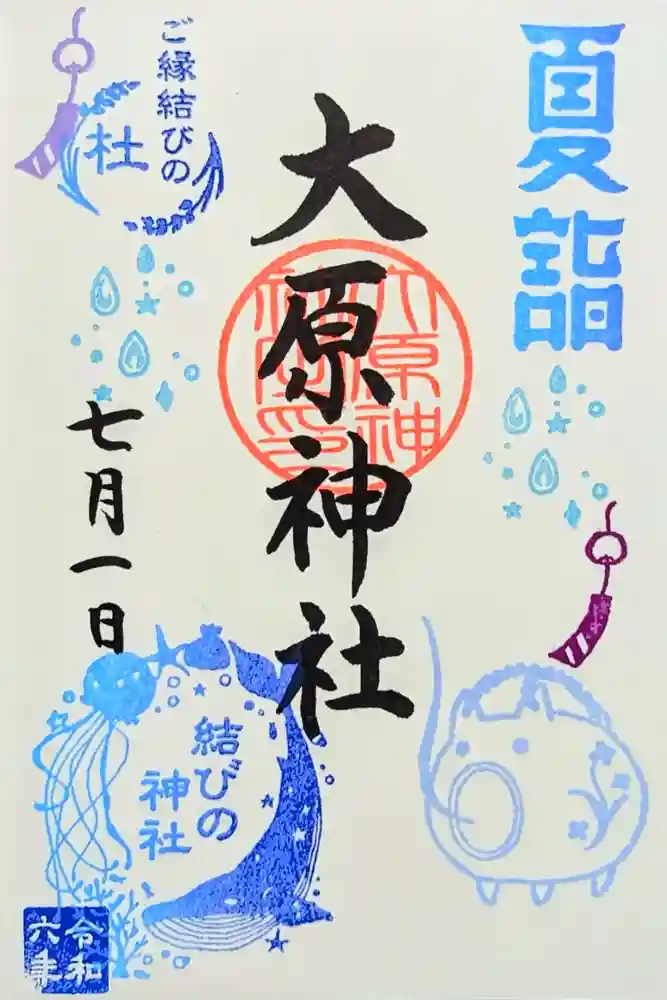 夏詣
大原神社
大原神社印
ご縁結びの
杜
七月一日
結びの
神社
令和
六年